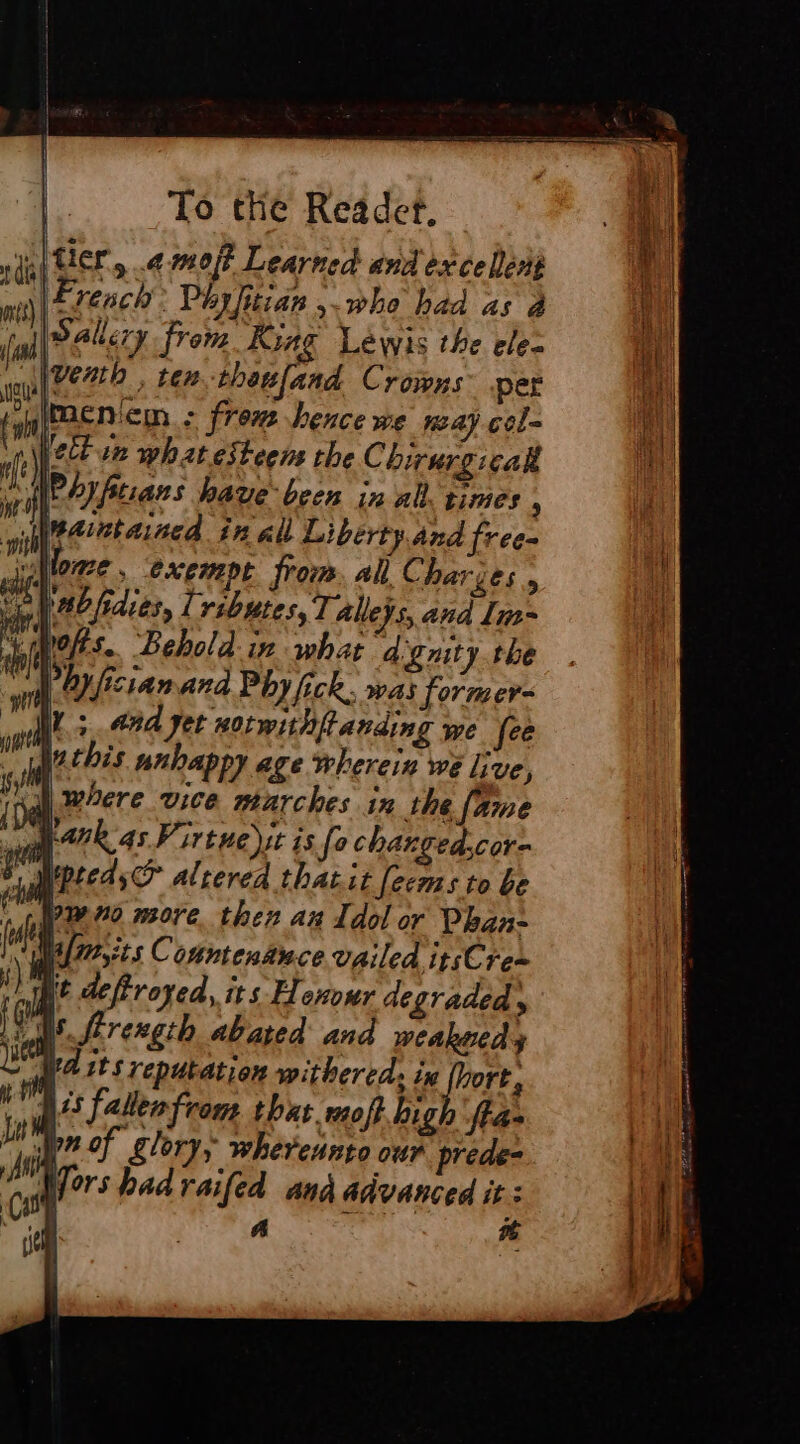 To the Reader.
tier, a moſt Learned and excellent
French Phyſitian, who had as a
Sallery from King Lewis the ele-
venth, ten thouſand Crowns per
menſem : from hence we may col-
lect in what eſteem the Chirurgicall
Phyſitians have been in all times,
maintained in all Liberty and free-
dome, exempt from all Charges,
ſubſidies, Tributes, Talleys, and Im-
poſts. Behold in what dignity the
Phyſician and Phyſick, was former-
ly ; and yet notwithſtanding we ſee
in this unhappy age wherein we live,
(where vice marches in the ſame
rank as Virtue) it is ſo changed, cor-
rupted, & altered that it ſeems to be
now no more then an Idol or Phan-
taſm, its Countenance vailed, its Cre-
dit deſtroyed, its Honour degraded,
its ſtrength abated and weakned,
and its reputation withered; in ſhort,
it is fallen from that moſt high ſta-
tion of glory, whereunto our prede-
ceſſors had raiſed and advanced it :
A it